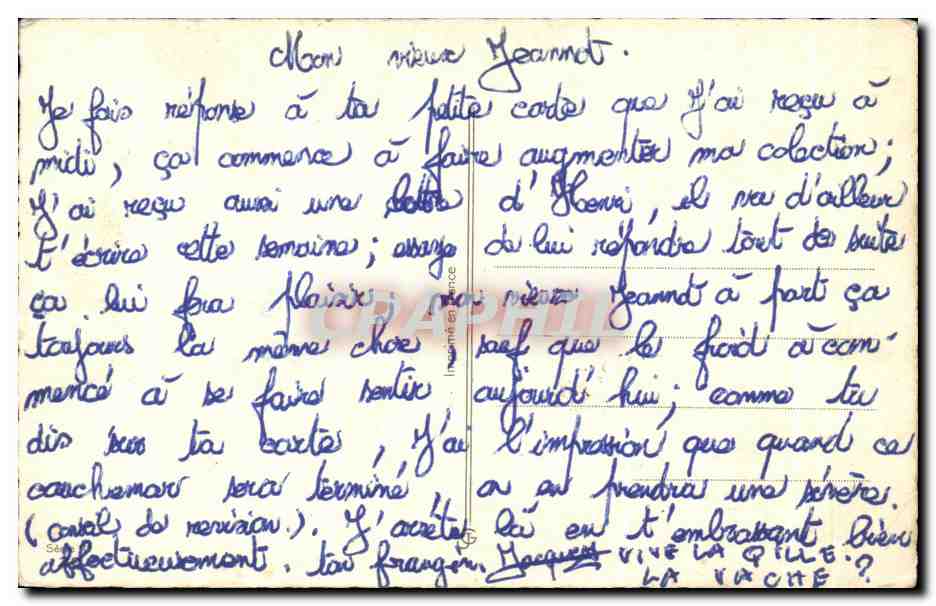 Mon vieux Jeannot.
Je fais réponse à ta petite carte que J'ai reçu à
midi, ça commence à faire augmenter ma colection;
J'ai reçu aussi une lettre d'Henri, il va d'ailleur
t'écrire cette semaine; essaye de lui répondre tout de suite
ça lui fera plaisir, mon vieux Jeannot à part ça
toujours la même chose sauf que le froid à com-
mencé à se faire sentir aujourd'hui; comme tu
dis sur ta carte, J'ai l'impression que quand ce
cauchemar sera terminé, on en prendra une sévère.
(conseil de revision.). J'arrête là en t'embrassant bien
affectueusement. ton frangin. Jacques VIVE LA QILLE.
LA VACHE ?
Imprimé en France
CPAPHIL
Série